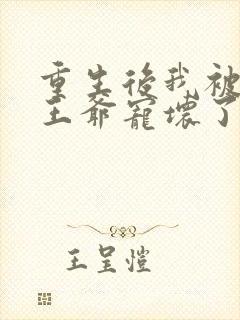 重生後我被
王爺寵壞了
王呈愷